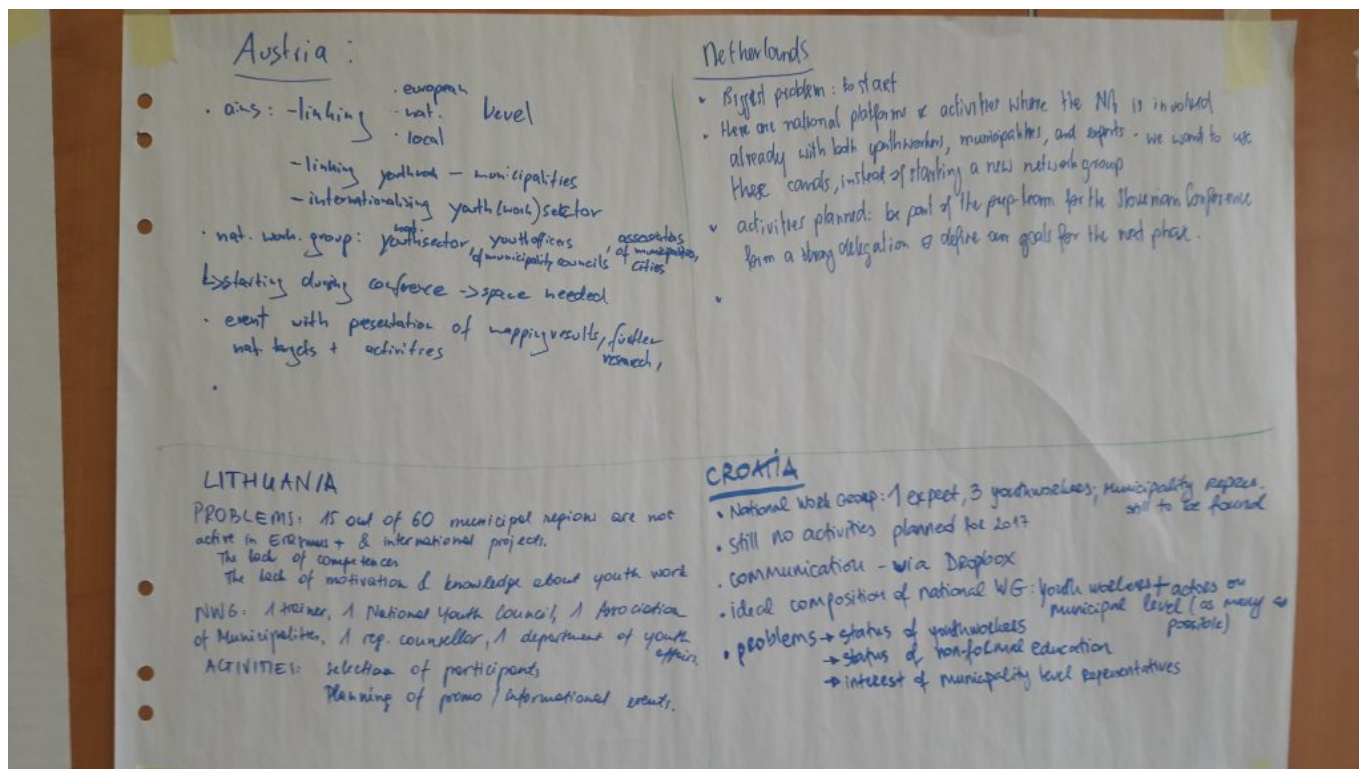 Austria :
• aims: - linking • european • nat. • local level
- linking youthwork - municipalities
- internationalizing youth (work) sector
• nat. work. group: nat. youthsector, youth officers of municipality councils, of municipalities, cities
↳ starting during conference -> space needed
• event with presentation of mapping results, further research,
nat. targets + activities
•
Netherlands
• Biggest problem: to start
• There are national platforms & activities where the NA is involved
already with both youthworkers, municipalities, and experts. we want to use
these, instead of starting a new network group
• activities planned: be part of the prep-team for the Slovenian Conference
form a strong delegation & define our goals for the next phase.
•
LITHUANIA
PROBLEMS: 15 out of 60 municipal regions are not
active in Erasmus + & international projects.
The lack of competences
The lack of motivation & knowledge about youth work
NWG: 1 trainer, 1 National Youth Council, 1 Association
of Municipalities, 1 reg. counsellor, 1 department of youth
affairs.
ACTIVITIES: selection of participants
Planning of promo / informational events.
CROATIA
• National Work Group: 1 expert, 3 youthworkers; municipality repres.
still to be found
• still no activities planned for 2017
• communication - via Dropbox
• ideal composition of national WG: youth workers + actors on
municipal level (as many as
possible)
• problems → status of youthworkers
→ status of non-formal education
→ interest of municipality level representatives